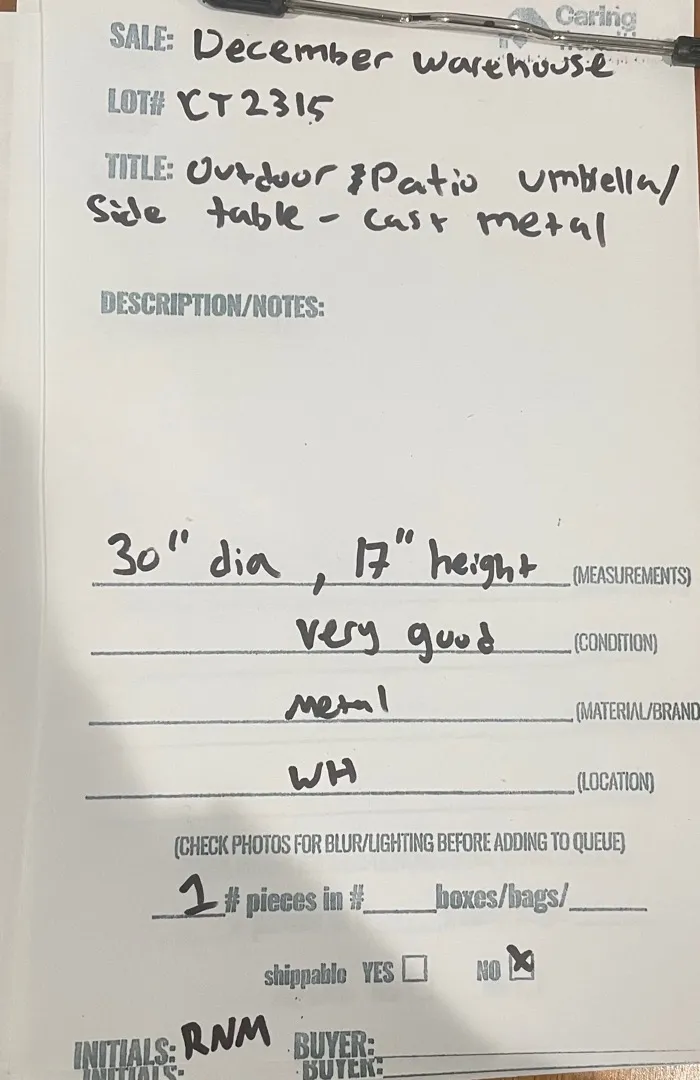 Caring
SALE: December warehouse
LOT# CT2315
TITLE: Outdoor & Patio umbrella/
Side table - cast metal
DESCRIPTION/NOTES:
30" dia, 17" height (MEASUREMENTS)
very good (CONDITION)
Metal (MATERIAL/BRAND
WH (LOCATION)
(CHECK PHOTOS FOR BLUR/LIGHTING BEFORE ADDING TO QUEUE)
1 # pieces in #____ boxes/bags/____
shippable YES ☐ NO ☒
INITIALS: RNM BUYER:
INITIALS: BUYER: